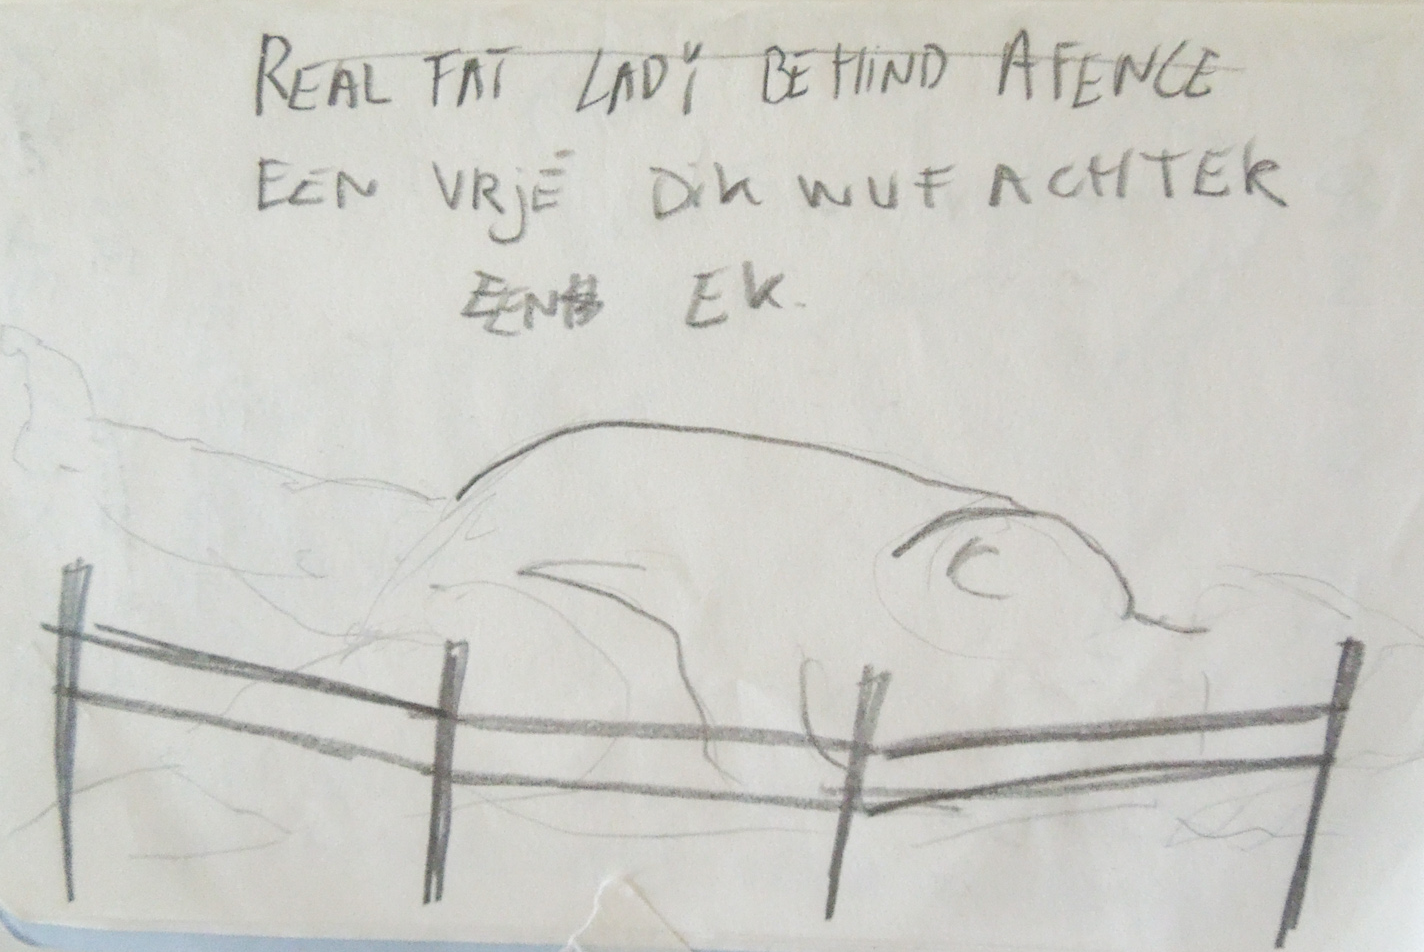 REAL FAT LADY BEHIND A FENCE
EEN VRJE DIK WUF ACHTER
EEN EK.